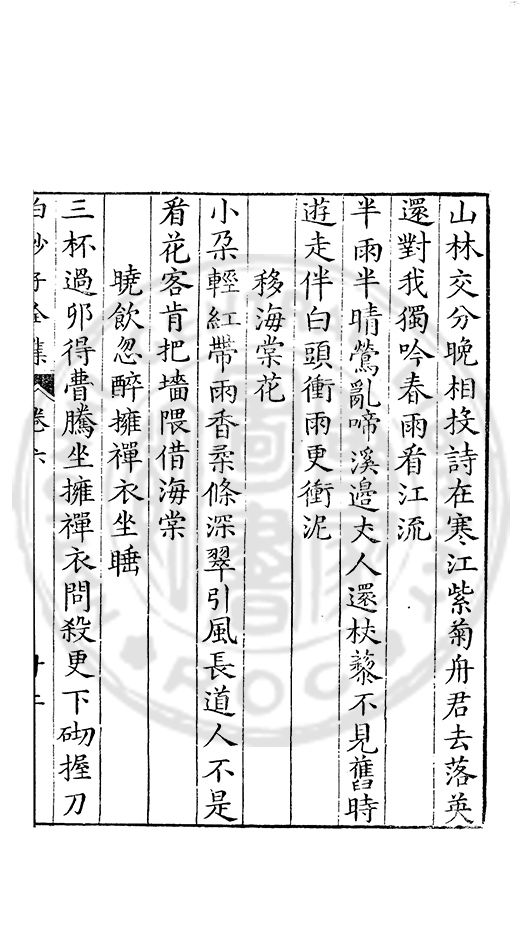 山林交分晚相投詩在寒江紫菊舟君去落英
還對我獨吟春雨看江流
半雨半晴鶯亂啼溪邊丈人還杖藜不見舊時
遊走伴白頭衝雨更衝泥
移海棠花
小朶輕紅帶雨香柔條深翠引風長道人不是
看花客肯把墻隈借海棠
曉飲忽醉擁禪衣坐睡
三杯過卯得曹騰坐擁禪衣問殺更下砌握刀
白沙子全集 卷六